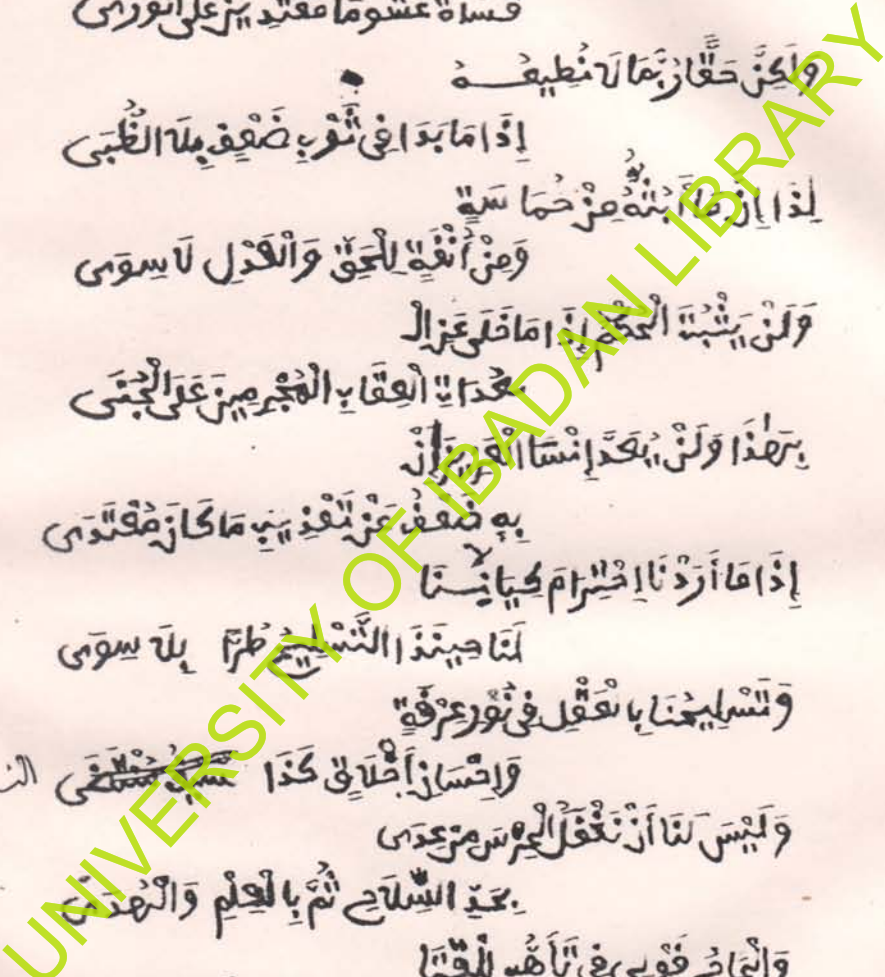 قساة غشوما معتدين على الورى
وَلَكِنَّ حَقًّا رُبَّمَا لَا نُطِيعُهُ
إِذَا مَا بَدَا فِي ثَوْبِ ضَعْفٍ بِلَا الظُّبَى
لِذَا إِنْ مِنْ حُمَاسَةٍ
وَمِنْ أَنْفَةٍ لِلْحَقِّ وَالْعَدْلِ لَا سِوَى
وَلَنْ يَثْبُتَ الْحُكْمُ إِذَا مَا خَلَى عَنِ الْ
الْعِقَابِ الْمُجْرِمِينَ عَلَى
بِهَذَا وَلَنْ إِنْ
بِهِ ضَعْفٌ عَنْ مَا كَانَ مُعْتَدَى
إِذَا مَا أَرَدْنَا احْتِرَامَ كِيَانِنَا
لَنَا حِينَئِذَا التَّسْلِيحُ طُرًّا بِلَا سِوَى
وَتَسْلِيحُنَا بِالْعَقْلِ فِي نُورِ عِرْفَةٍ
وَإِحْسَانِ أَخْلَاقٍ كَذَا
وَلَيْسَ لَنَا أَنْ نَغْفَلَ الْحِرْسَ مِنْ عِدَى
بِحَدِّ السِّلَاحِ ثُمَّ بِالْعِلْمِ وَالْهُدَى
قَوْمِي فِي تَأَهُّبِ
UNIVERSITY OF IBADAN LIBRARY